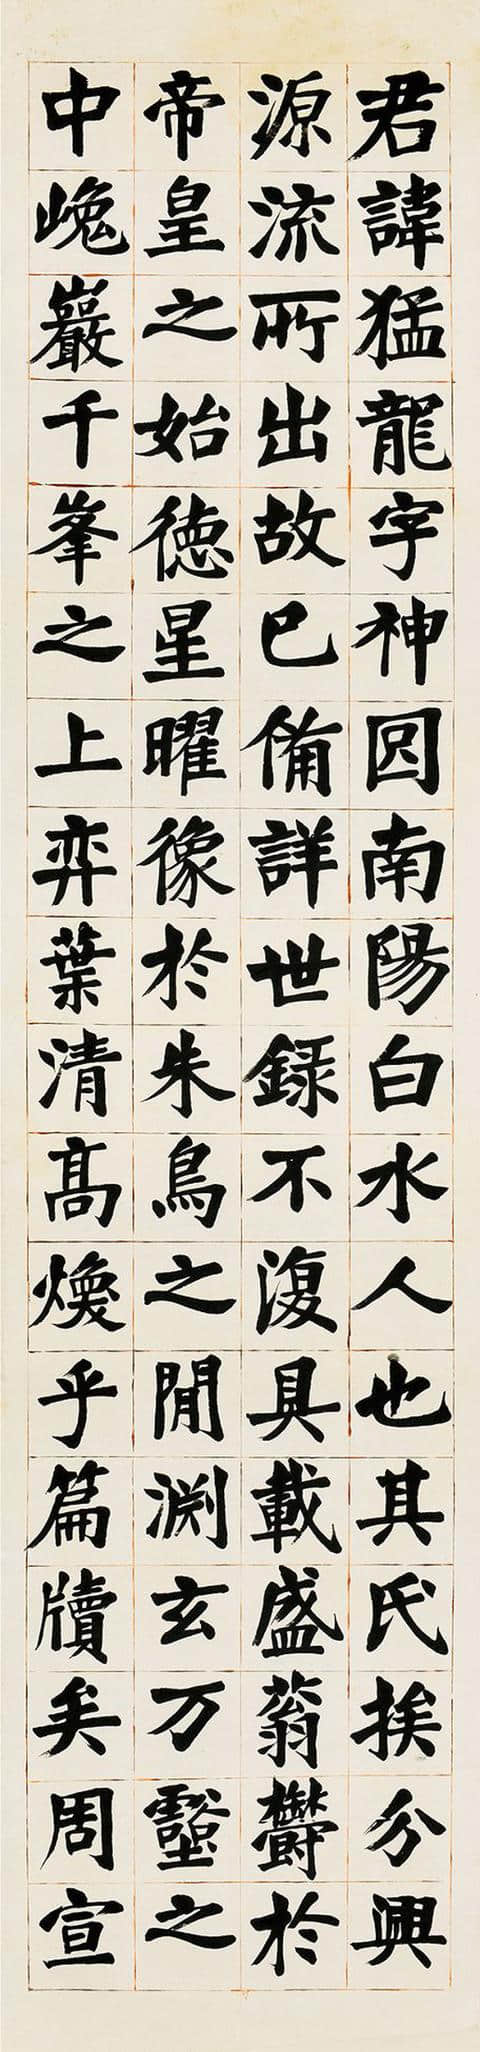 君諱猛龍字神囙南陽白水人也其氏挨分興
源流所出故已俻詳世録不復具載盛蓊欝於
帝皇之始徳星曜像於朱鳥之閒渊玄万壑之
中巉巖千峯之上弈葉清髙煥乎篇牘矣周宣